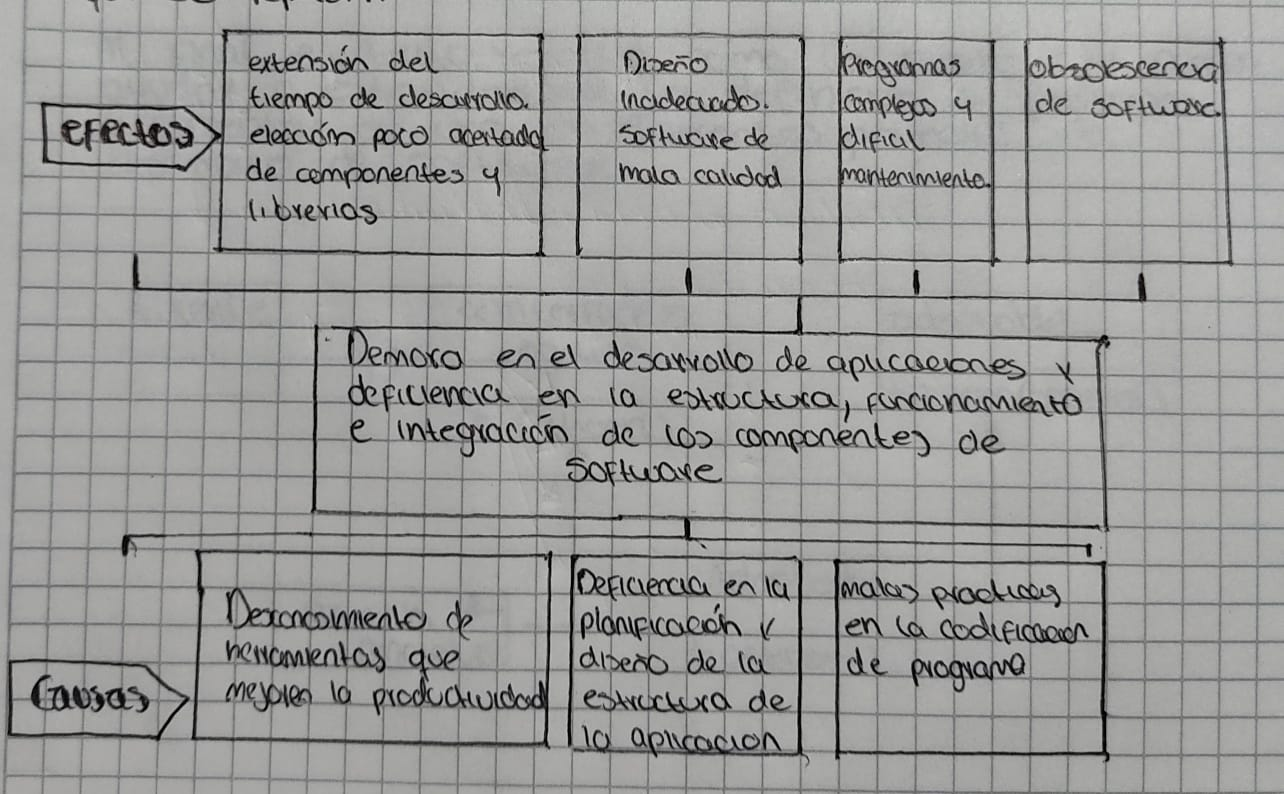 efectos
extensión del
tiempo de desarrollo.
elección poco acertada
de componentes y
librerias
Diseño
inadecuado.
software de
mala calidad
Programas
complejos y
dificil
mantenimiento.
obsolescencia
de software.
Demora en el desarrollo de aplicaciones y
deficiencia en la estructura, funcionamiento
e integración de los componentes de
software
Causas
Desconocimiento de
herramientas que
mejoren la productividad
Deficiencia en la
planificación y
diseño de la
estructura de
la aplicacion
malas practicas
en la codificacion
de programa